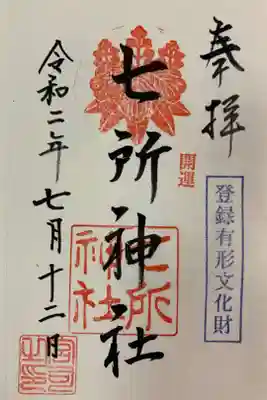 奉拝
開運
登録有形文化財
七所神社
七所神社
令和二年七月十二日